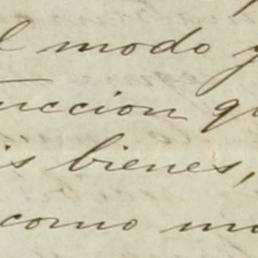 l modo y
uccion qu
is bienes,
como m